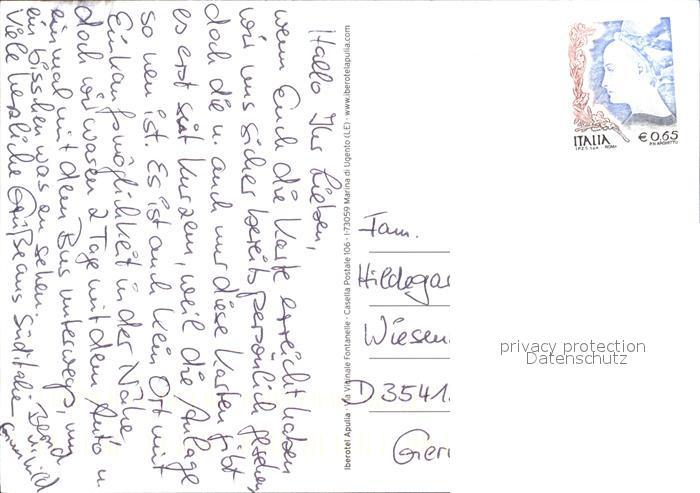 Hallo Ihr Lieben,
wenn Euch die Karte erreicht haben
wir uns sicher bereits persönlich gesehen,
doch die u. auch nur diese Karten gibt
es erst seit kurzem, weil die Anlage
so neu ist. Es ist auch kein Ort mit
Einkaufsmöglichkeit in der Nähe,
doch wir waren 2 Tage mit dem Auto u.
einmal mit dem Bus unterwegs, um
ein bisschen was zu sehen.
Viele herzliche Grüße aus Süditalien
Iberotel Apulia · Via Vicinale Fontanelle · Casella Postale 106 · I-73059 Marina di Ugento (LE) · www.iberotelapulia.com
ITALIA
€ 0,65
I.P.Z.S. S.p.A. ROMA
Fam.
Hildegar
Wiesen
D 3541
Ger
privacy protection
Datenschutz